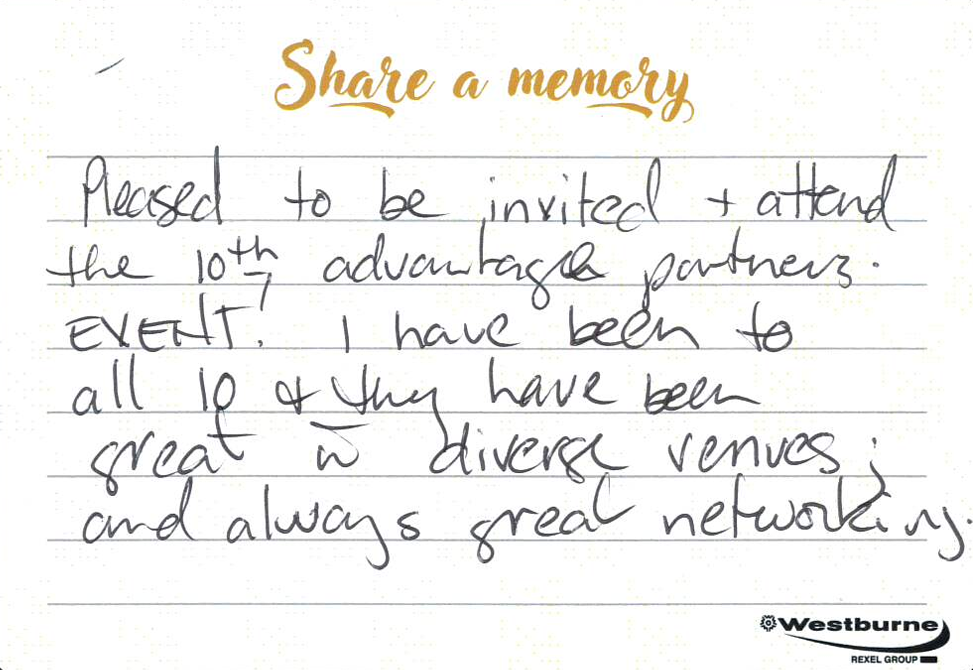 Share a memory
Pleased to be invited + attend
the 10th advantage partners.
EVENT! I have been to
all 10 & they have been
great w̄ diverse venues;
and always great networking.
Westburne
REXEL GROUP